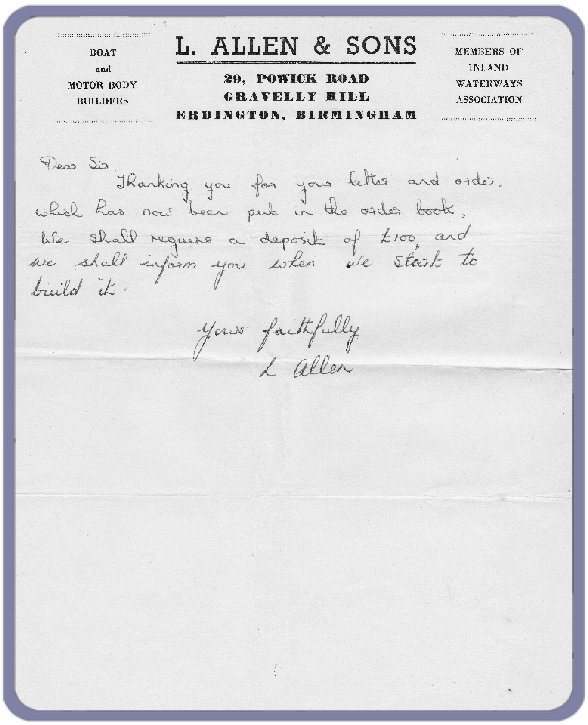 BOAT
and
MOTOR BODY
BUILDERS
L. ALLEN & SONS
29, POWICK ROAD
GRAVELLY HILL
ERDINGTON, BIRMINGHAM
MEMBERS OF
INLAND
WATERWAYS
ASSOCIATION
Dear Sir
Thanking you for your letter and order,
which has now been put in the order book,
We shall require a deposit of £100, and
we shall inform you when we start to
build it.
Yours faithfully
L Allen